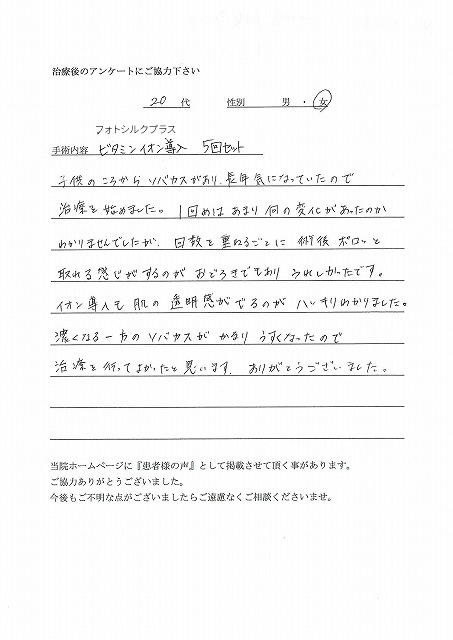 治療後のアンケートにご協力下さい
20 代 性別 男 ・ 女
フォトシルクプラス
手術内容 ビタミンイオン導入 5回セット
子供のころからソバカスがあり、長年気になっていたので
治療を始めました。1回めはあまり何の変化があったのか
わかりませんでしたが、回数を重ねるごとに術後ポロッと
取れる感じがするのがおどろきでもありうれしかったです。
イオン導入も肌の透明感がでるのがハッキリわかりました。
濃くなる一方のソバカスがかなりうすくなったので
治療を行ってよかったと思います。ありがとうございました。
当院ホームページに『患者様の声』として掲載させて頂く事があります。
ご協力ありがとうございました。
今後もご不明な点がございましたらご遠慮なくご相談くださいませ。